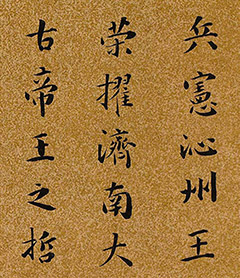 兵憲沁州王
荣擢濟南大
古帝王之哲